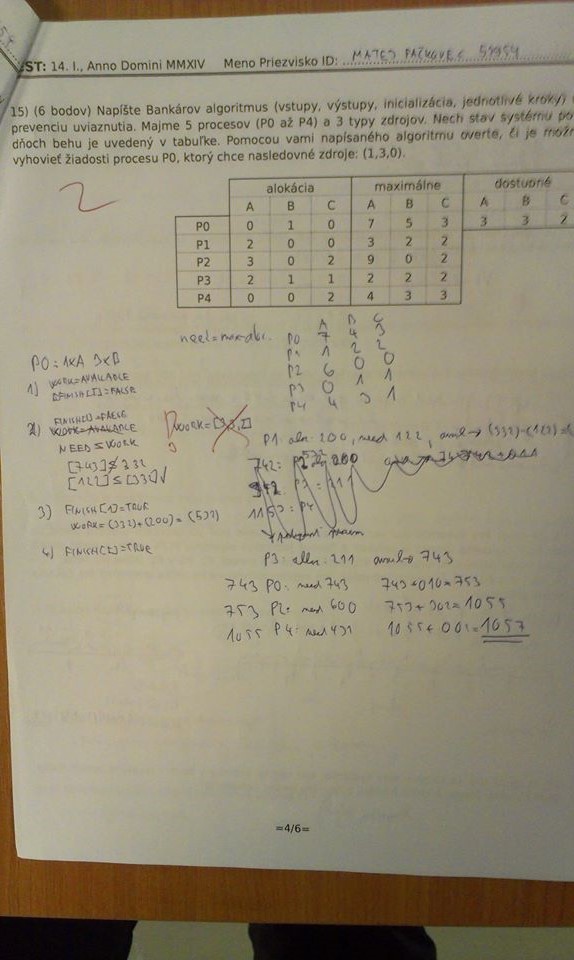 ST: 14. I., Anno Domini MMXIV Meno Priezvisko ID:
15) (6 bodov) Napíšte Bankárov algoritmus (vstupy, výstupy, inicializácia, jednotlivé kroky)
prevenciu uviaznutia. Majme 5 procesov (P0 až P4) a 3 typy zdrojov. Nech stav systému po
dňoch behu je uvedený v tabuľke. Pomocou vami napísaného algoritmu overte, či je možn
vyhovieť žiadosti procesu P0, ktorý chce nasledovné zdroje: (1,3,0).
2
alokácia maximálne dostupné
A B C A B C A B C
P0 0 1 0 7 5 3 3 3 2
P1 2 0 0 3 2 2
P2 3 0 2 9 0 2
P3 2 1 1 2 2 2
P4 0 0 2 4 3 3
A B C
P0 7 4 3
P1 1 2 2
P2 6 0 0
P3 0 1 1
P4 4 3 1
P0: 1xA 3xB
1) WORK=AVAILABLE
FINISH[I]=FALSE
2) FINISH[I]=FALSE
WORK=AVAILABLE
NEED≤WORK
[743]≰332
[122]≤[332]√
3) FINISH[1]=TRUE
WORK=(332)+(200)=(532)
4) FINISH[I]=TRUE
P1: alok: 200, need 122,
P3: allok: 211 avail→ 743
743 P0: need 743 743+010=753
753 P2: need 600 753+302=1055
1055 P4: need 431 1055+002=1057
=4/6=